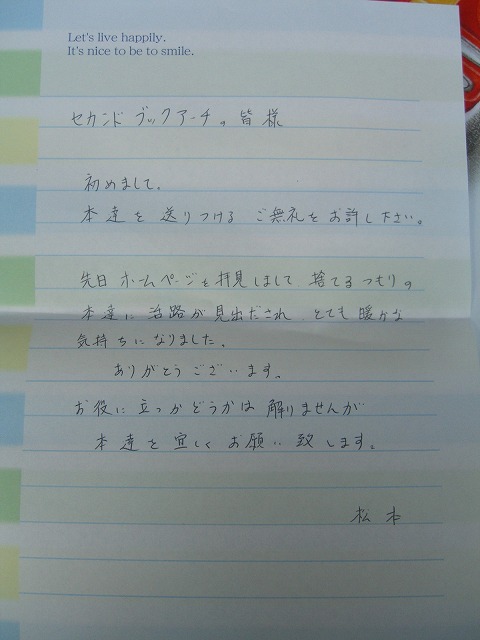 Let's live happily.
It's nice to be to smile.
セカンドブックアーチの皆様
初めまして。
本達を送りつけるご無礼をお許し下さい。
先日ホームページを拝見しまして、捨てるつもりの
本達に活路が見出だされ、とても暖かな
気持ちになりました。
ありがとうございます。
お役に立つかどうかは解りませんが
本達を宜しくお願い致します。
松本